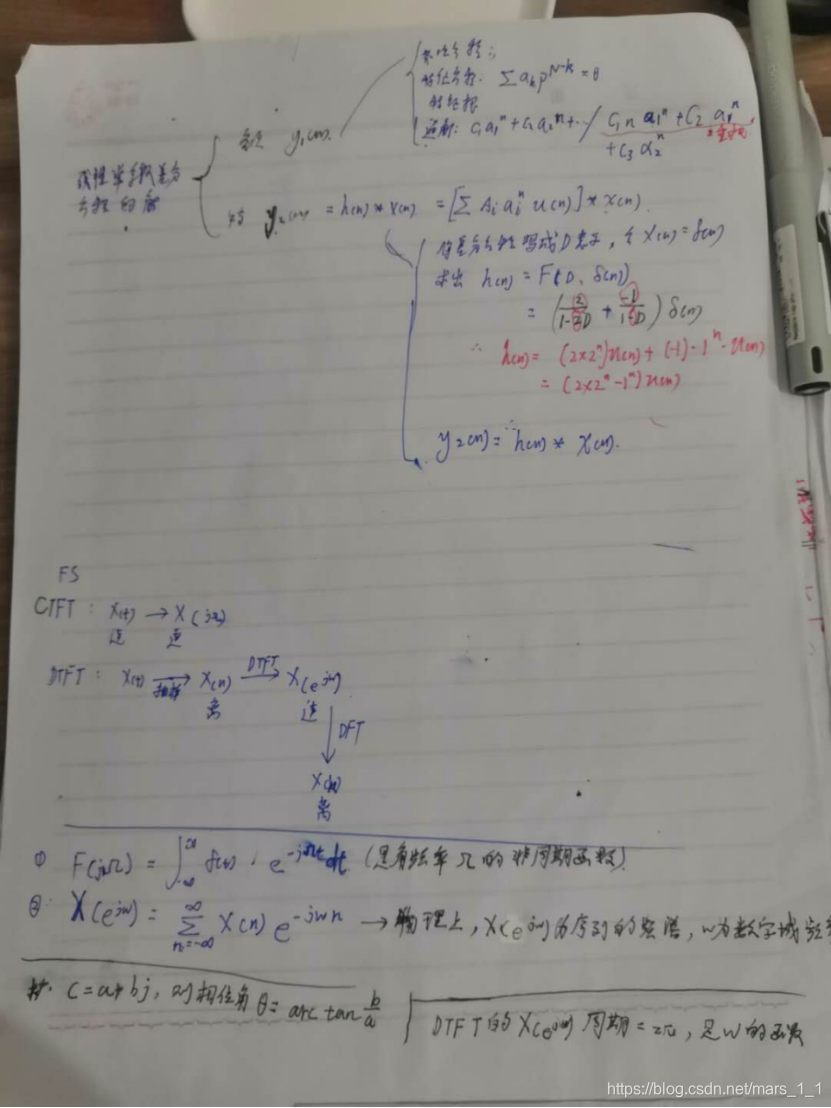 齐次方程:
特征方程: Σ aₖ p^{N-k} = 0
特征根
通解: C₁α₁ⁿ + C₂α₂ⁿ + … / C₁n α₁ⁿ + C₂ α₁ⁿ
+ C₃ α₂ⁿ
y₁(n).
线性常系数差分
方程的解
特 y₂(n) = h(n) * x(n) = [Σ Aᵢ αᵢⁿ u(n)] * x(n).
将差分方程写成D算子, 令 x(n) = δ(n)
求出 h(n) = F(D, δ(n))
= (2/(1-2D) + -1/(1-D)) δ(n)
∴ h(n) = (2×2ⁿ)u(n) + (-1)·1ⁿ·u(n)
= (2×2ⁿ-1ⁿ)u(n)
y₂(n) = h(n) * x(n).
FS
CTFT: x(t) → X(jΩ)
连 连
DTFT: x(t) →抽样 x(n) →DTFT X(e^{jw})
离 连
↓ DFT
X(k)
离
① F(jΩ) = ∫_{-∞}^{∞} f(t) · e^{-jΩt} dt (是有频率Ω的非周期函数)
②: X(e^{jw}) = Σ_{n=-∞}^{∞} x(n) e^{-jwn} → 物理上, X(e^{jw})为序列的频谱, w为数字域频率
补. C=a+bj, 则相位角 θ= arc tan b/a
DTFT的X(e^{jw})周期=2π, 是w的函数
https://blog.csdn.net/mars_1_1